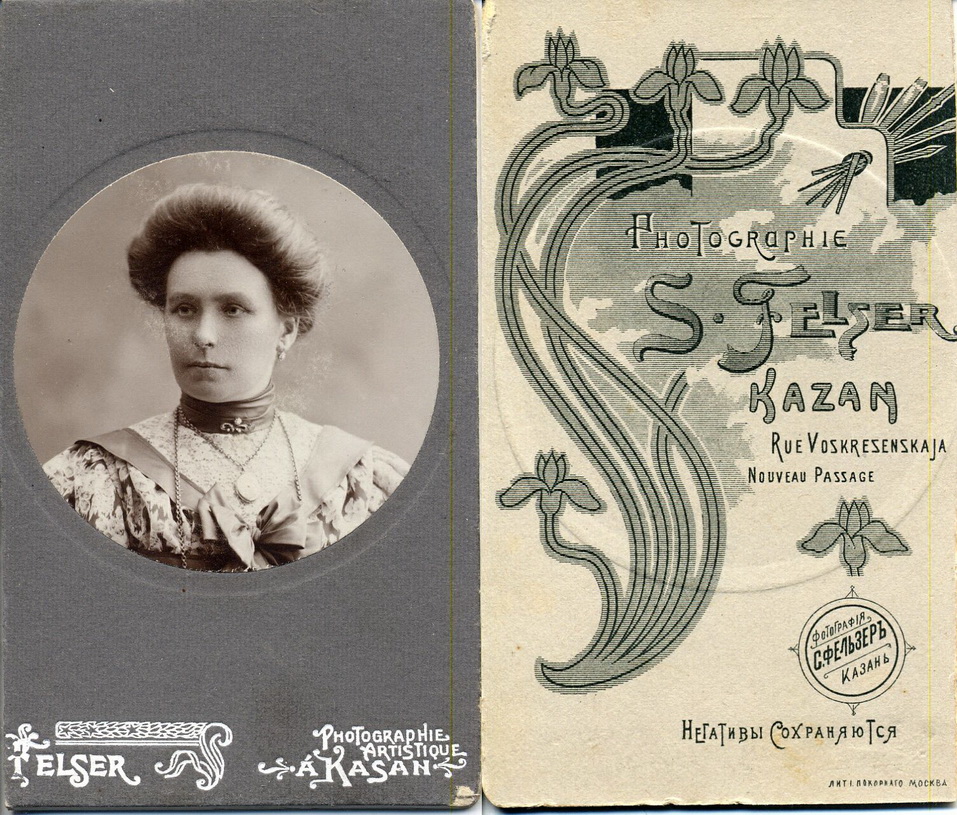 FELSER
PHOTOGRAPHIE
ARTISTIQUE
Á KASAN
PHOTOGRAPHIE
S. FELSER
KAZAN
RUE VOSKRESENSKAJA
NOUVEAU PASSAGE
ФОТОГРАФІЯ
С.ФЕЛЬЗЕРЪ
КАЗАНЬ
НЕГАТИВЫ СОХРАНЯЮТСЯ
ЛИТ. ПОКОРНАГО МОСКВА